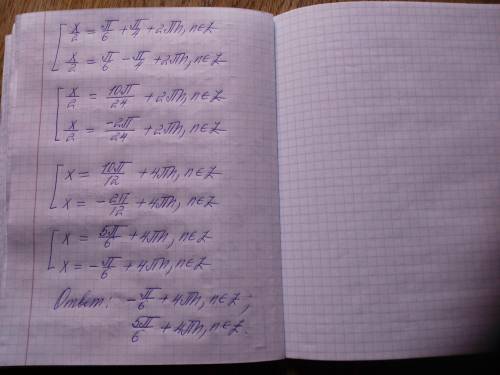 [ x/2 = π/6 + π/4 + 2πn, n∈Z
x/2 = π/6 - π/4 + 2πn, n∈Z
[ x/2 = 10π/24 + 2πn, n∈Z
x/2 = -2π/24 + 2πn, n∈Z
[ x = 10π/12 + 4πn, n∈Z
x = -2π/12 + 4πn, n∈Z
[ x = 5π/6 + 4πn, n∈Z
x = -π/6 + 4πn, n∈Z
Ответ: -π/6 + 4πn, n∈Z;
5π/6 + 4πn, n∈Z.